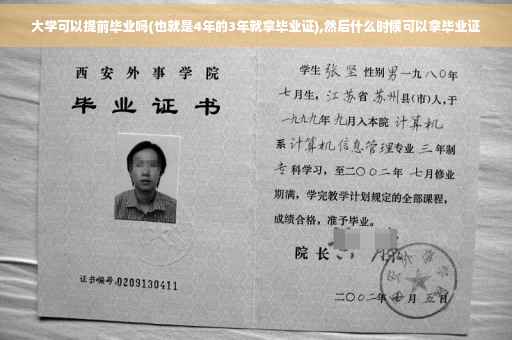 大学可以提前毕业吗(也就是4年的3年就拿毕业证),然后什么时候可以拿毕业证
西安外事学院
毕业证书
证书编号:0209130411
学生 张坚 性别 男 一九八〇年
七月生, 江苏省 苏州 县(市)人,于
一九九九年 九月入本院 计算机
系 计算机信息管理 专业 三 年制
专 科学习, 至二〇〇二年 七月修业
期满, 学完教学计划规定的全部课程,
成绩合格, 准予毕业。
院长
二〇〇二年 月 五日